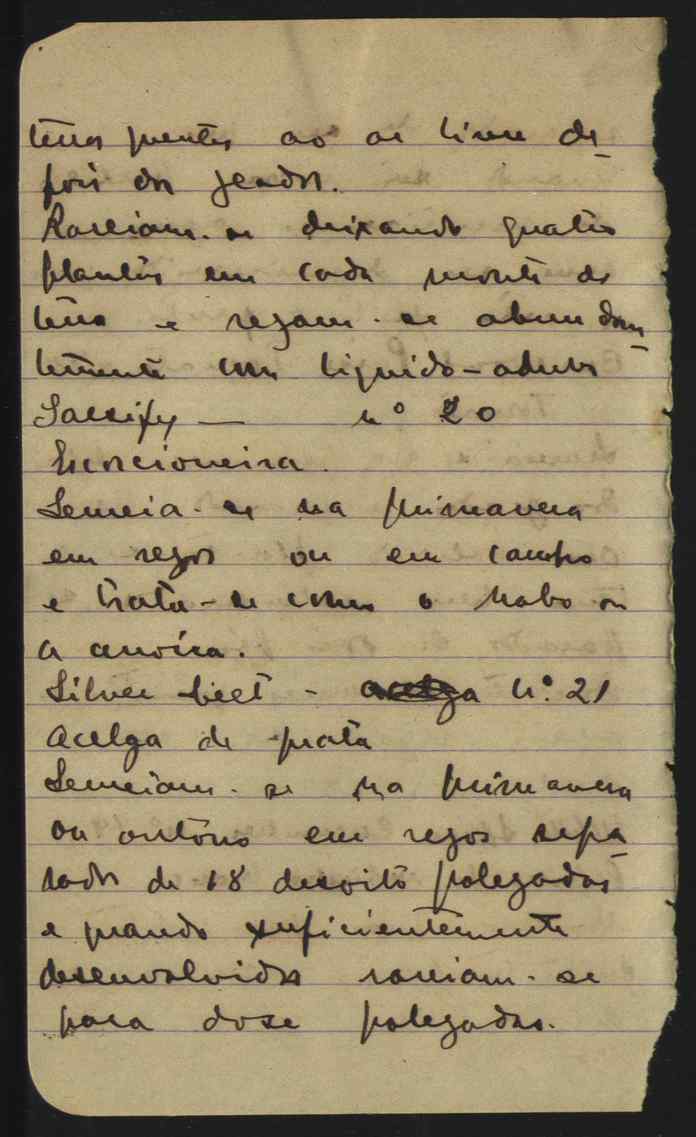 terras quentes ao ar livre de-
pois dos geados.
Rareiam-se deixando quatro
plantas em cada monte de
terra e regam-se abundan-
temente com liquido-adubo
Salsify — nº 20
Escorcioneira.
Semeia-se na primavera
em regos ou em campo
e trata-se como o nabo ou
a cenoira.
Silver beet - nº 21
Acelga de prata
Semeiam-se na primavera
ou outono em regos sepa-
rados de 18 desoito polegadas
e quando suficientemente
desenvolvidos rareiam-se
para dose polegadas.